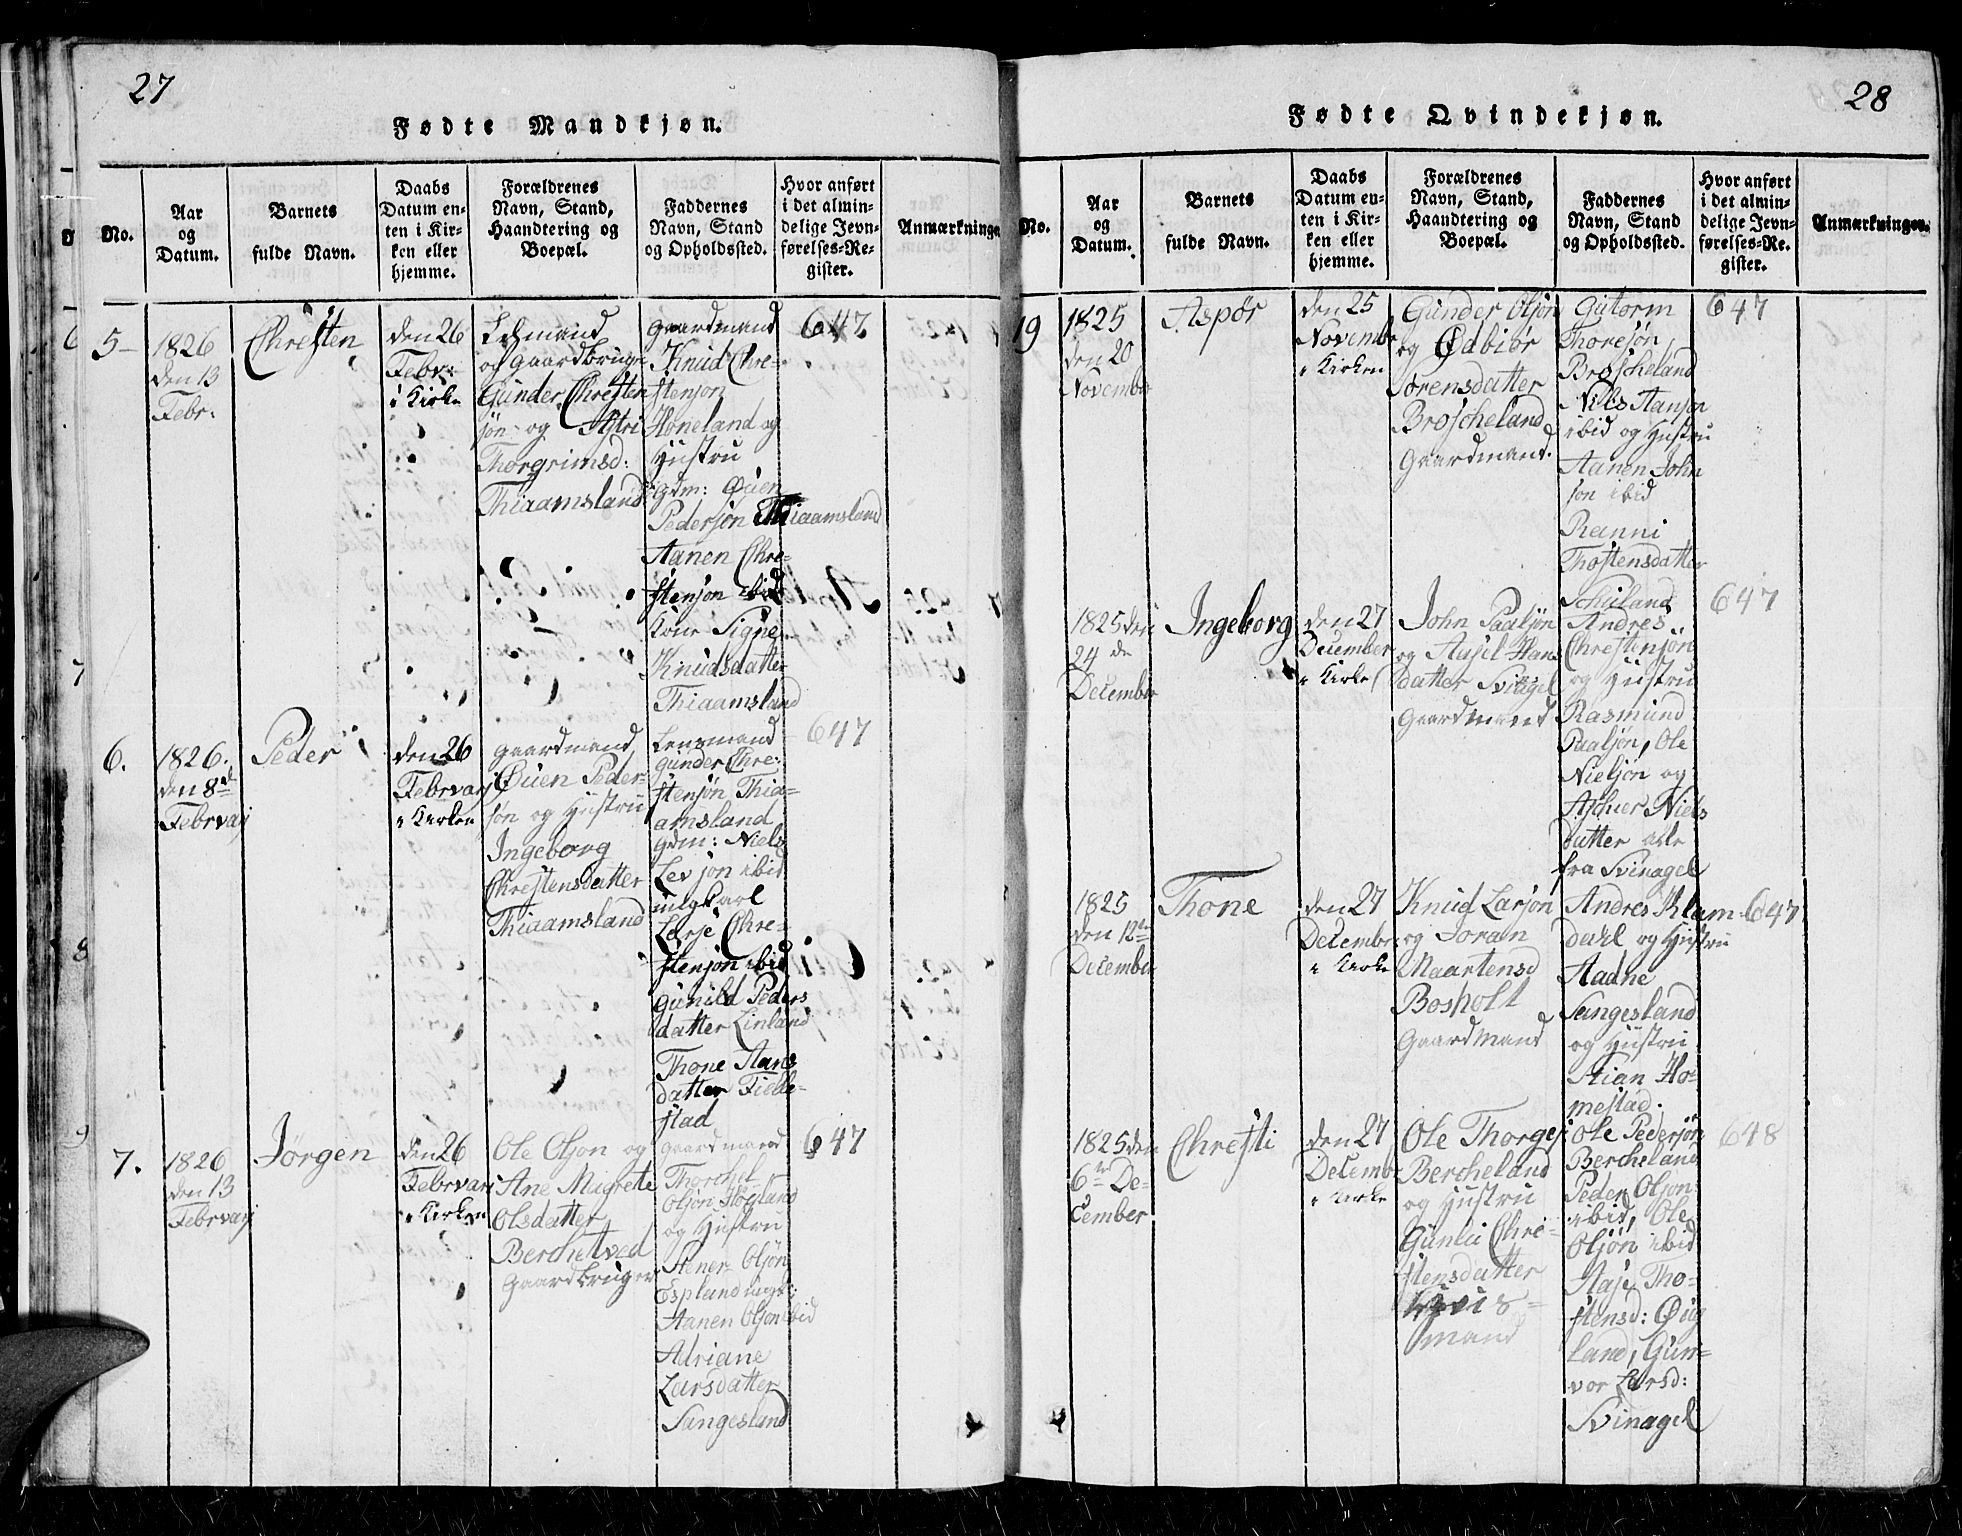 27
Fødte Mandkjøn.
No.
Aar
og
Datum.
Barnets
fulde Navn.
Daabs
Datum en-
ten i Kir-
ken eller
hjemme.
Forældrenes
Navn, Stand,
Haandtering og
Boepæl.
Faddernes
Navn, Stand
og Opholdssted.
Hvor anført
i det almin-
delige Jevn-
førelses-Re-
gister.
Anmærkninger
5-
1826
den 13
Febr:
Chresten
den 26
Febr:
i Kirke
og Gaardbruger
Gunder Chresten
søn og Astri
Thorgrimsd:
Thiaamsland
gaardmand
Knud Chre-
stensøn
Honeland og
Hustru
gdm: Øuen
Pedersøn Thiaamsland
Aanen Chre-
stensøn ibid
kone Signe
Knudsdatter
Thiaamsland
647
6.
1826.
den 8de
Februarj
Peder
den 26
Februarj
i Kirken
gaardmand
Øuen Peder-
søn og Hustru
Ingeborg
Chrestensdatter
Thiaamsland
Lensmand
gunder Chre-
stensøn Thia-
amsland
gdm: Niels
Levson ibid
ungkarl
Larse Chre-
stenson ibid
Gunild Peders
datter Linland
Thone Aans
datter Fidde-
stad
647
7.
1826
den 13
Februarj
Jørgen
den 26
Februarj
i Kirken
Ole Olson og
Ane Magrete
Olsdatter
Berchetved
Gaardbruger
gaardmand
Thorchel
Olsøn Høgland
og Hustru
Stener Olsøn
Espland ungk:
Aanen Olson ibid
Adriane
Larsdatter
Sangesland
647
28
Fødte Qvindekjøn.
No.
Aar
og
Datum.
Barnets
fulde Navn.
Daabs
Datum en-
ten i Kir-
ken eller
hjemme.
Forældrenes
Navn, Stand,
Haandtering og
Boepæl.
Faddernes
Navn, Stand
og Opholdssted.
Hvor anført
i det almin-
delige Jevn-
førelses-Re-
gister.
Anmærkninger.
19
1825
den 20
November
Aspør
den 25
Novembr
i Kirken
Gunder Olsøn
og Ødbiør
Sorensdatter
Broscheland
Gaardmand.
Gutorm
Thoresøn,
Broscheland
Nils Aanson
ibid og Hustru
Aanen John
son ibid
Ranni
Thostensdatter
647
1825 den
24 de
December
Ingeborg
den 27
December
i Kirke
John Paalsøn
og Aasil Hans
datter Svinagel
Gaardmand
Andres
Chrestensøn
og Hustru
Rasmund
Paalsøn, Ole
Nielsøn og
Ascher Niels
datter alle
fra Svinagel
647
1825
den 12te
December
Thone
den 27
Decembr
i Kirke
Knud Larson
og Joran
Maartensd
Bosholt
Gaardmand
Andres Klam
dahl og Hustru
Aadne
Sangesland
og Hustru
Stian Ho-
mestad.
647
1825 den
6te De-
cember
Chresti
den 27
Decemb
i Kirke
Ole Thorges
Bercheland
og Hustru
Gunla Chre-
stensdatter
mand
Ole Pedersøn
Bercheland
Peder Olson
ibid, Ole
Olsøn ibid
Aase Tho-
stensd: Øig
land, Gun-
vor Larsd:
Svinagel
648